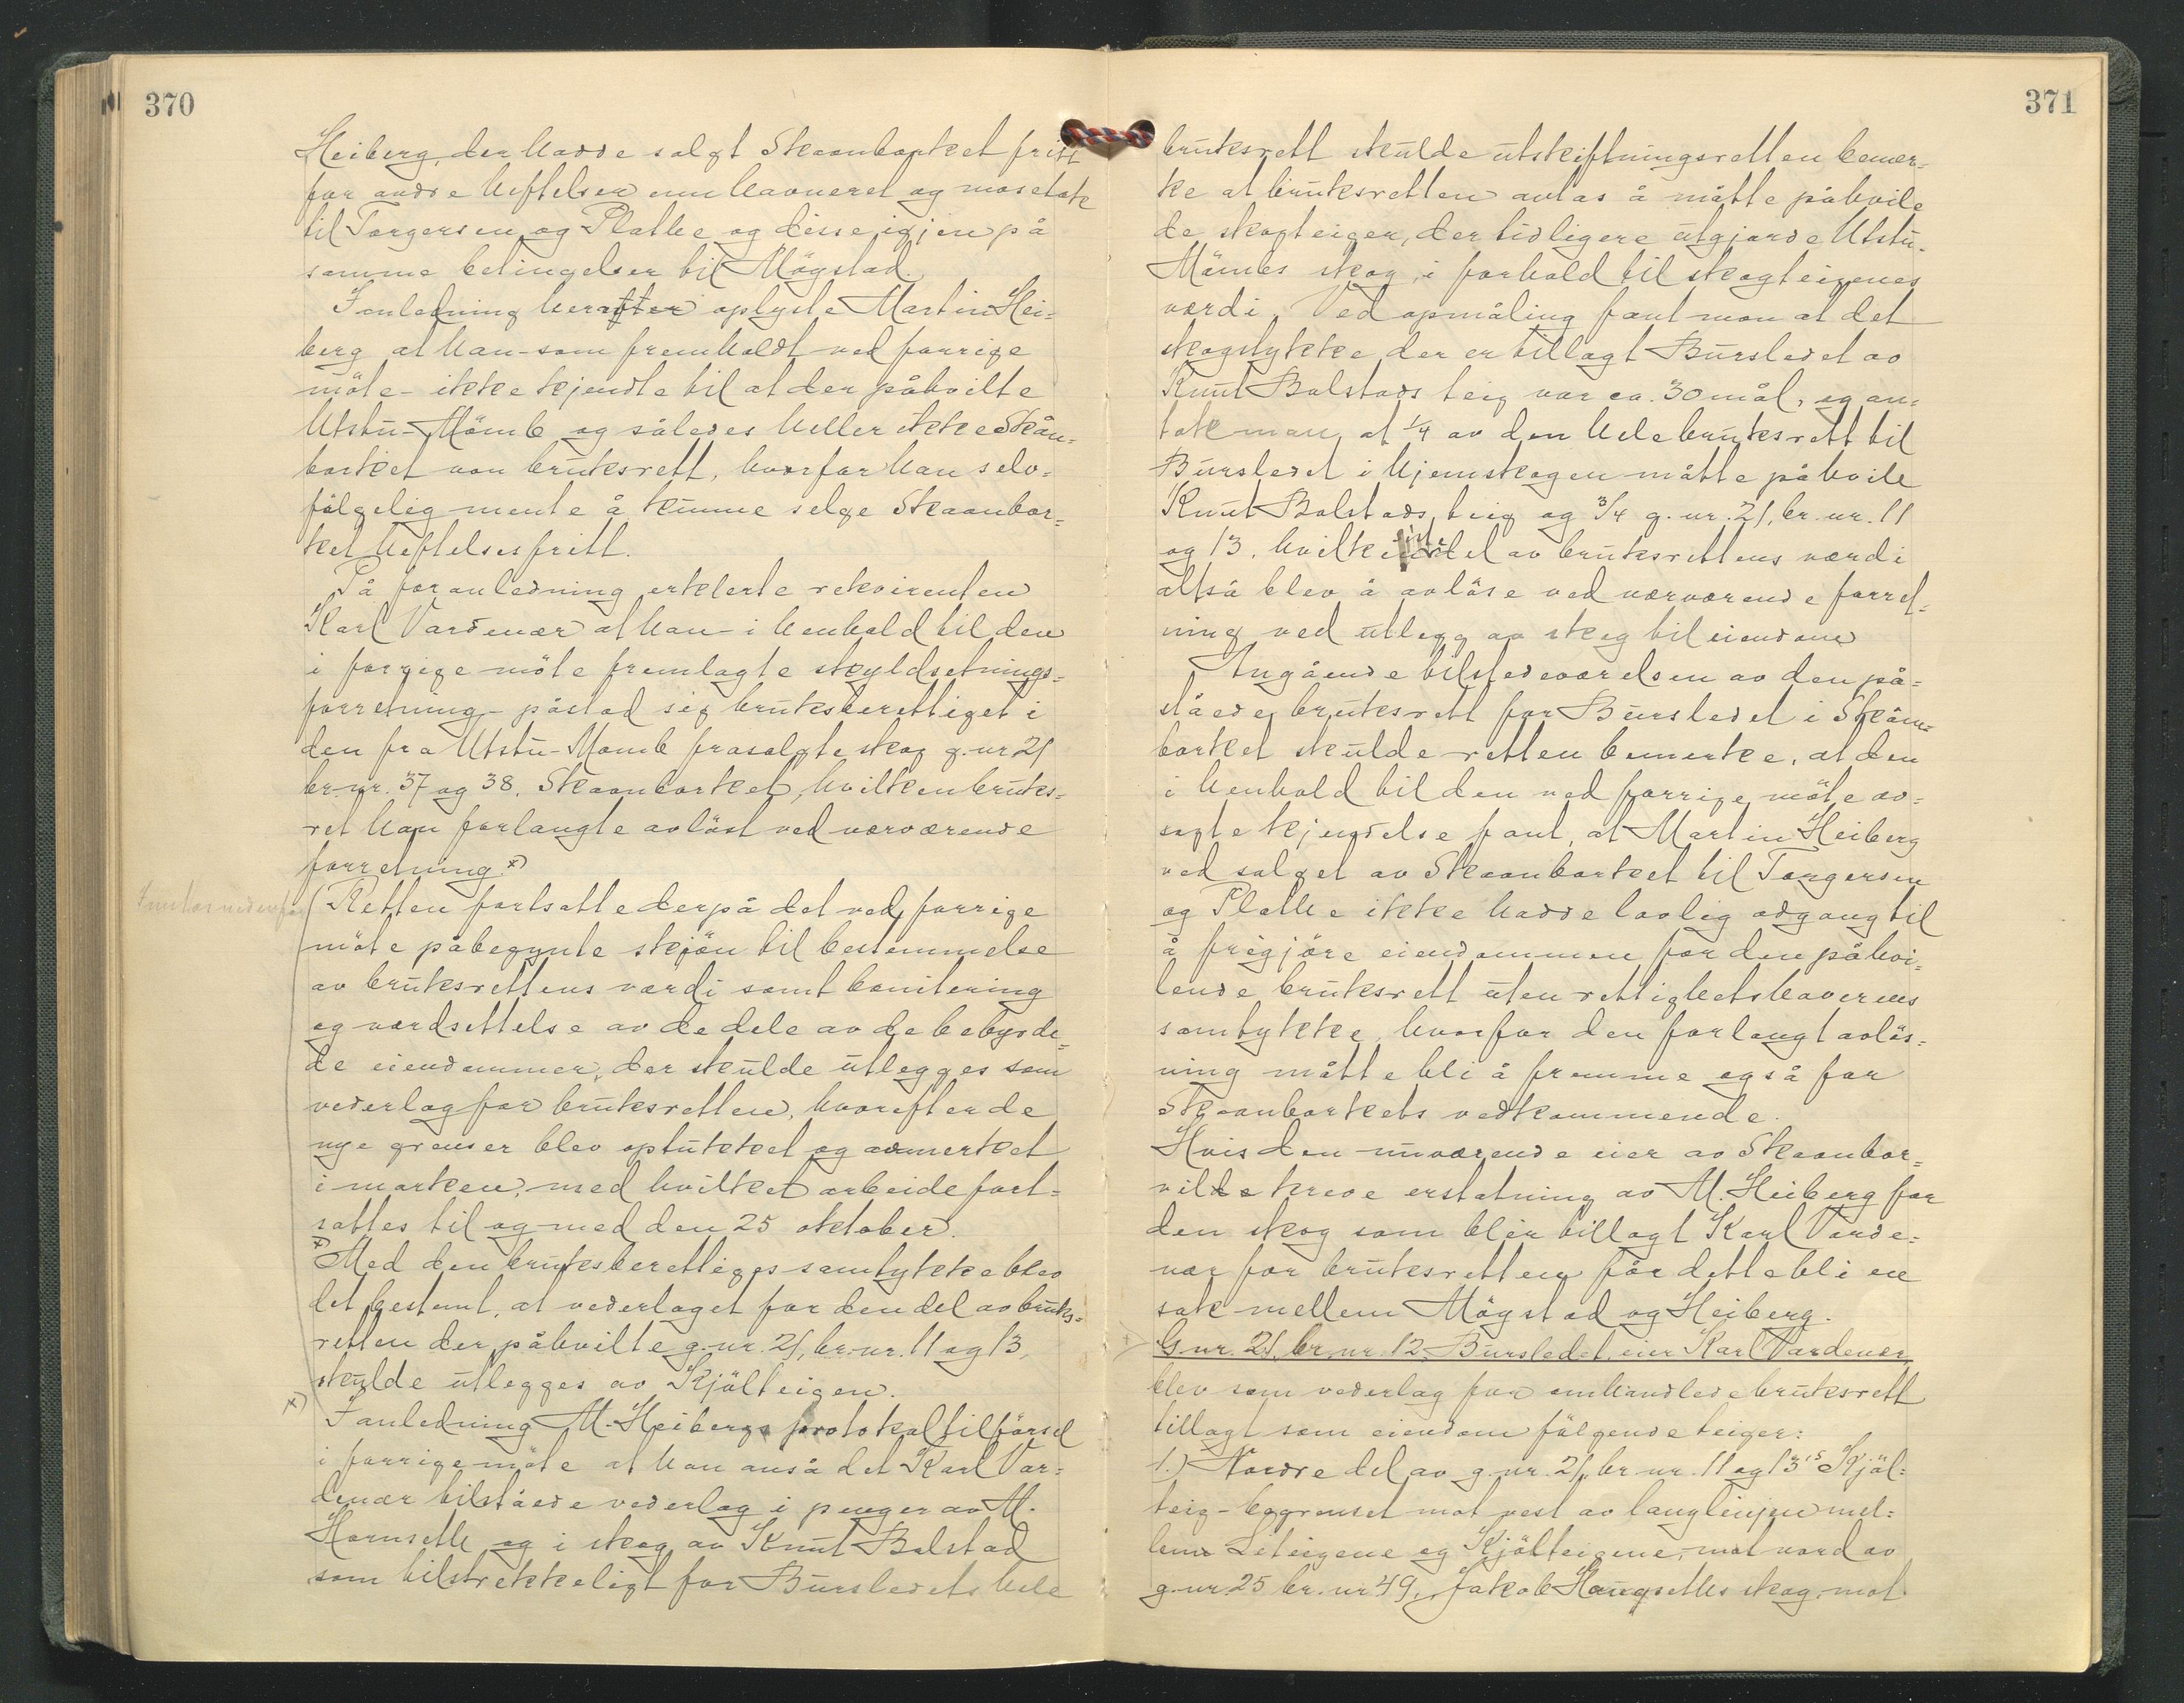 370
Heiberg, der hadde solgt Skaanbarket fritt
for andre heftelser enn havneret og mosetak
til Torgersen og Plathe og disse igjen på
samme betingelser til Mögstad.
I anledning herav oplyste Martin Hei=
berg at han - som fremholdt ved forrige
möte - ikke kjendte til at der påhvilte
Utstu-Mömb og således heller ikke Skån=
barket von bruksrett, hvorfor han selv=
fölgelig mente å kunne selge Skaanbar=
ket heftelsesfritt.
På foranledning erklerte rekvirenten
Karl Vardenær at han - i henhold til den
i forrige möte fremlagte skyldsetnings=
forretning - påstod sig bruksberettiget i
den fra Utstu-Momb frasolgte skog g.nr 21
br.nr. 37 og 38, Skaanbarket, hvilken bruks=
ret han forlangte avlöst ved nærværende
forretning. x)
Inntas nedenfor
Retten fortsatte derpå det ved forrige
möte påbegynte skjön til bestemmelse
av bruksrettens værdi samt bonitering
og værdsettelse av de dele av de bebyrde=
de eiendommer, der skulde utlegges som
vederlag for bruksretten, hvorefter de
nye grenser blev optukket og avmerket
i marken, med hvilket arbeide fort=
sattes til og med den 25 oktober.
x) Med den bruksberettiges samtykke blev
det bestemt, at vederlaget for den del av bruks=
retten der påhvilte g.nr. 21, br.nr. 11 og 13,
skulde utlegges av Kjölteigen.
x) I anledning M. Heibergs protokoltilförsel
i forrige möte at han anså det Karl Var=
denær tilståede vederlag i penger av M.
Hornseth og i skog av Knut Bolstad
som tilstrekkeligt for Bursledets hele
371
bruksrett skulde utskiftningsretten bemer=
ke at bruksretten antas å måtte påhvile
de skogteiger, der tidligere utgjorde Utstu-
Mömbs skog, i forhold til skogteigenes
værdi. Ved opmåling fant man at det
skogstykke, der er tillagt Bursledet av
Knut Bolstads teig var ca. 30 mål, og an=
tok man, at 1/4 av den hele bruksrett til
Bursledet i hjemskogen måtte påhvile
Knut Bolstads teig og 3/4 g.nr. 21, br.nr. 11
og 13, hvilken siste del av bruksrettens værdi
altså blev å avlöse ved nærværende forret=
ning ved utlegg av skog til eiendom
Angående tilstedeværelsen av den på=
ståede bruksrett for Bursledet i Skån=
barket skulde retten bemerke, at den
i henhold til den ved forrige möte av=
sagte kjendelse fant, at Martin Heiberg
ved salget av Skaanbarket til Torgersen
og Plathe ikke hadde lovlig adgang til
å frigjöre eiendommen for den påhvi=
lende bruksrett uten rettighetshaverens
samtykke, hvorfor den forlangt avlös=
ning måtte bli å fremme også for
Skaanbarkets vedkommende.
Hvis den nuværende eier av Skaanbar=
vil kreve erstatning av M. Heiberg for
den skog som blir tillagt Karl Varde=
nær for bruksretten får dette bli en
sak mellem Mögstad og Heiberg.
G.nr. 21, br.nr. 12 Bursledet, eier Karl Vardenær
blev som vederlag for omhandlede bruksrett
tillagt som eiendom fölgende teiger:
1.) Nordre del av g.nr. 21, br.nr. 11 og 13 Kjöl=
teig - begrenset mot vest av langlinjen mel=
lem Liteigene og Kjölteigene, mot nord av
g.nr 25 br.nr 49, Jakob Haugseths skog, mot